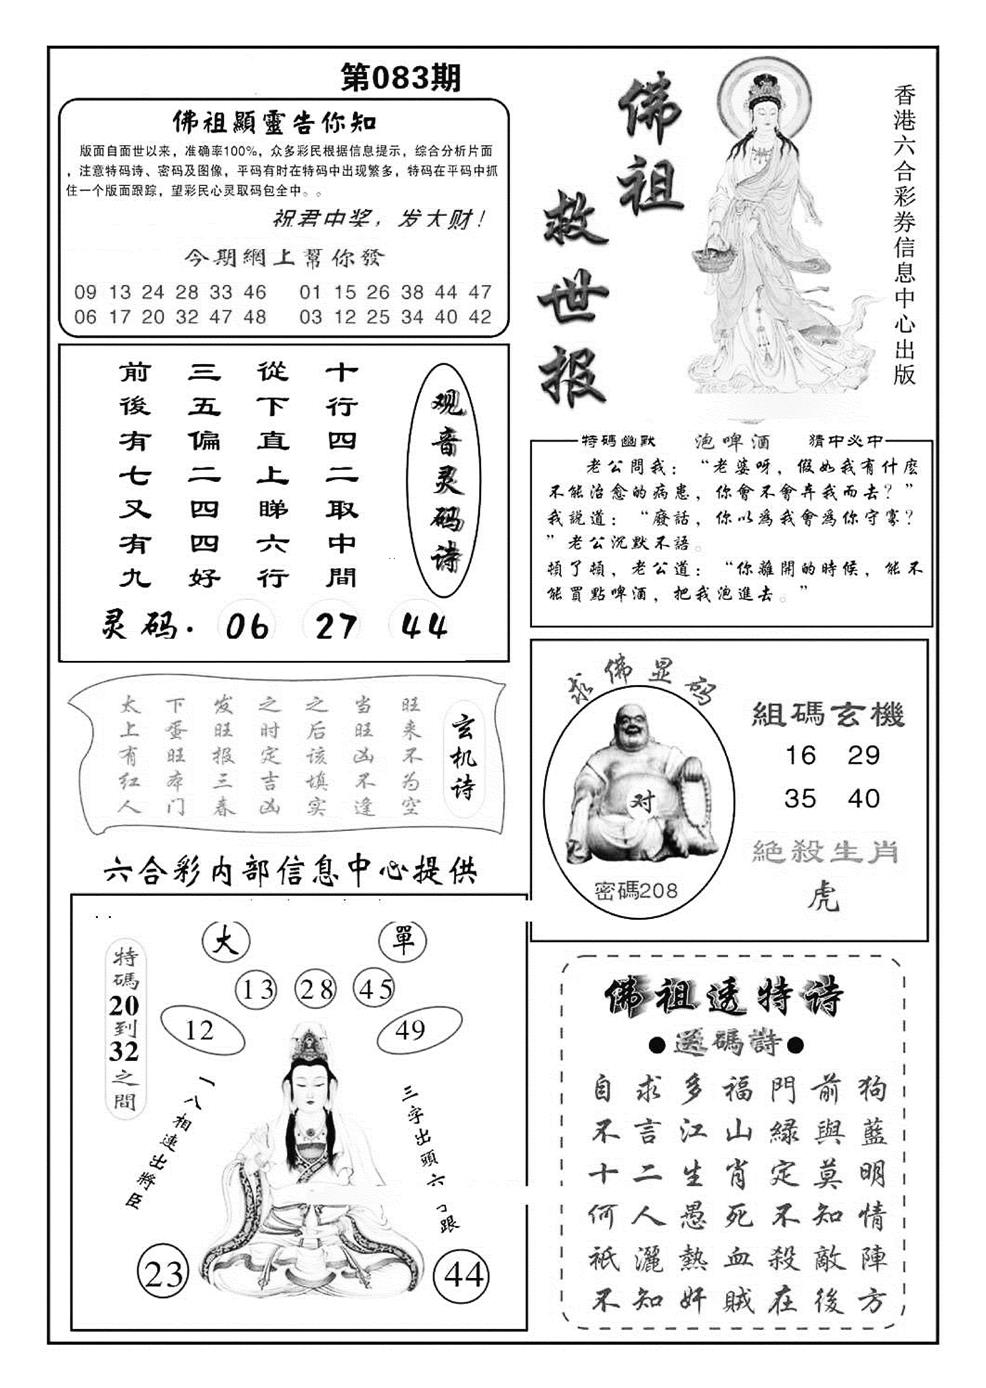 第083期
佛祖顯靈告你知
版面自面世以来，准确率100%，众多彩民根据信息提示，综合分析片面
，注意特码诗、密码及图像，平码有时在特码中出现繁多，特码在平码中抓
住一个版面跟踪，望彩民心灵取码包全中。。
祝君中奖，发大财！
今期網上幫你發
09 13 24 28 33 46 01 15 26 38 44 47
06 17 20 32 47 48 03 12 25 34 40 42
佛祖
救世报
香港六合彩券信息中心出版
观音灵码诗
十行四二取中間
從下直上睇六行
三五偏二四四好
前後有七又有九
灵码. 06 27 44
特碼幽默 泡啤酒 猜中必中
老公問我：“老婆呀，假如我有什麽
不能治愈的病患，你會不會弃我而去？”
我説道：“廢話，你以爲我會爲你守寡？
”老公沉默不語。
頓了頓，老公道：“你離開的時候，能不
能買點啤酒，把我泡進去。”
玄机诗
旺来不为空
当旺凶不逢
之后该填实
之时定吉凶
发旺报三春
下蛋旺本门
太上有红人
六合彩内部信息中心提供
求佛显码
对
密碼208
組碼玄機
16 29
35 40
絕殺生肖
虎
大 單
13 28 45
12 49
特碼20到32之間
一八相連出將臣
三字出頭六 跟
23 44
佛祖透特诗
●送碼詩●
自求多福門前狗
不言江山緑與藍
十二生肖定莫明
何人愚死不知情
祇灑熱血殺敵陣
不知奸賊在後方